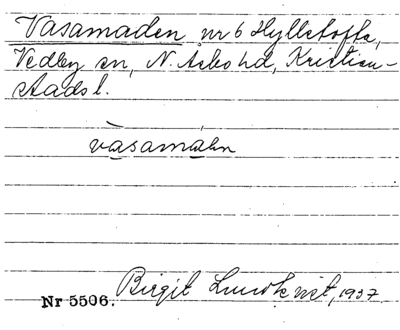 Vasamaden nr 6 Hyllstofta,
Vedby sn, N. Åsbo hd, Kristian-
stads l.
vàsamáḷn
Birgit Lundkvist, 1937
Nr 5506.